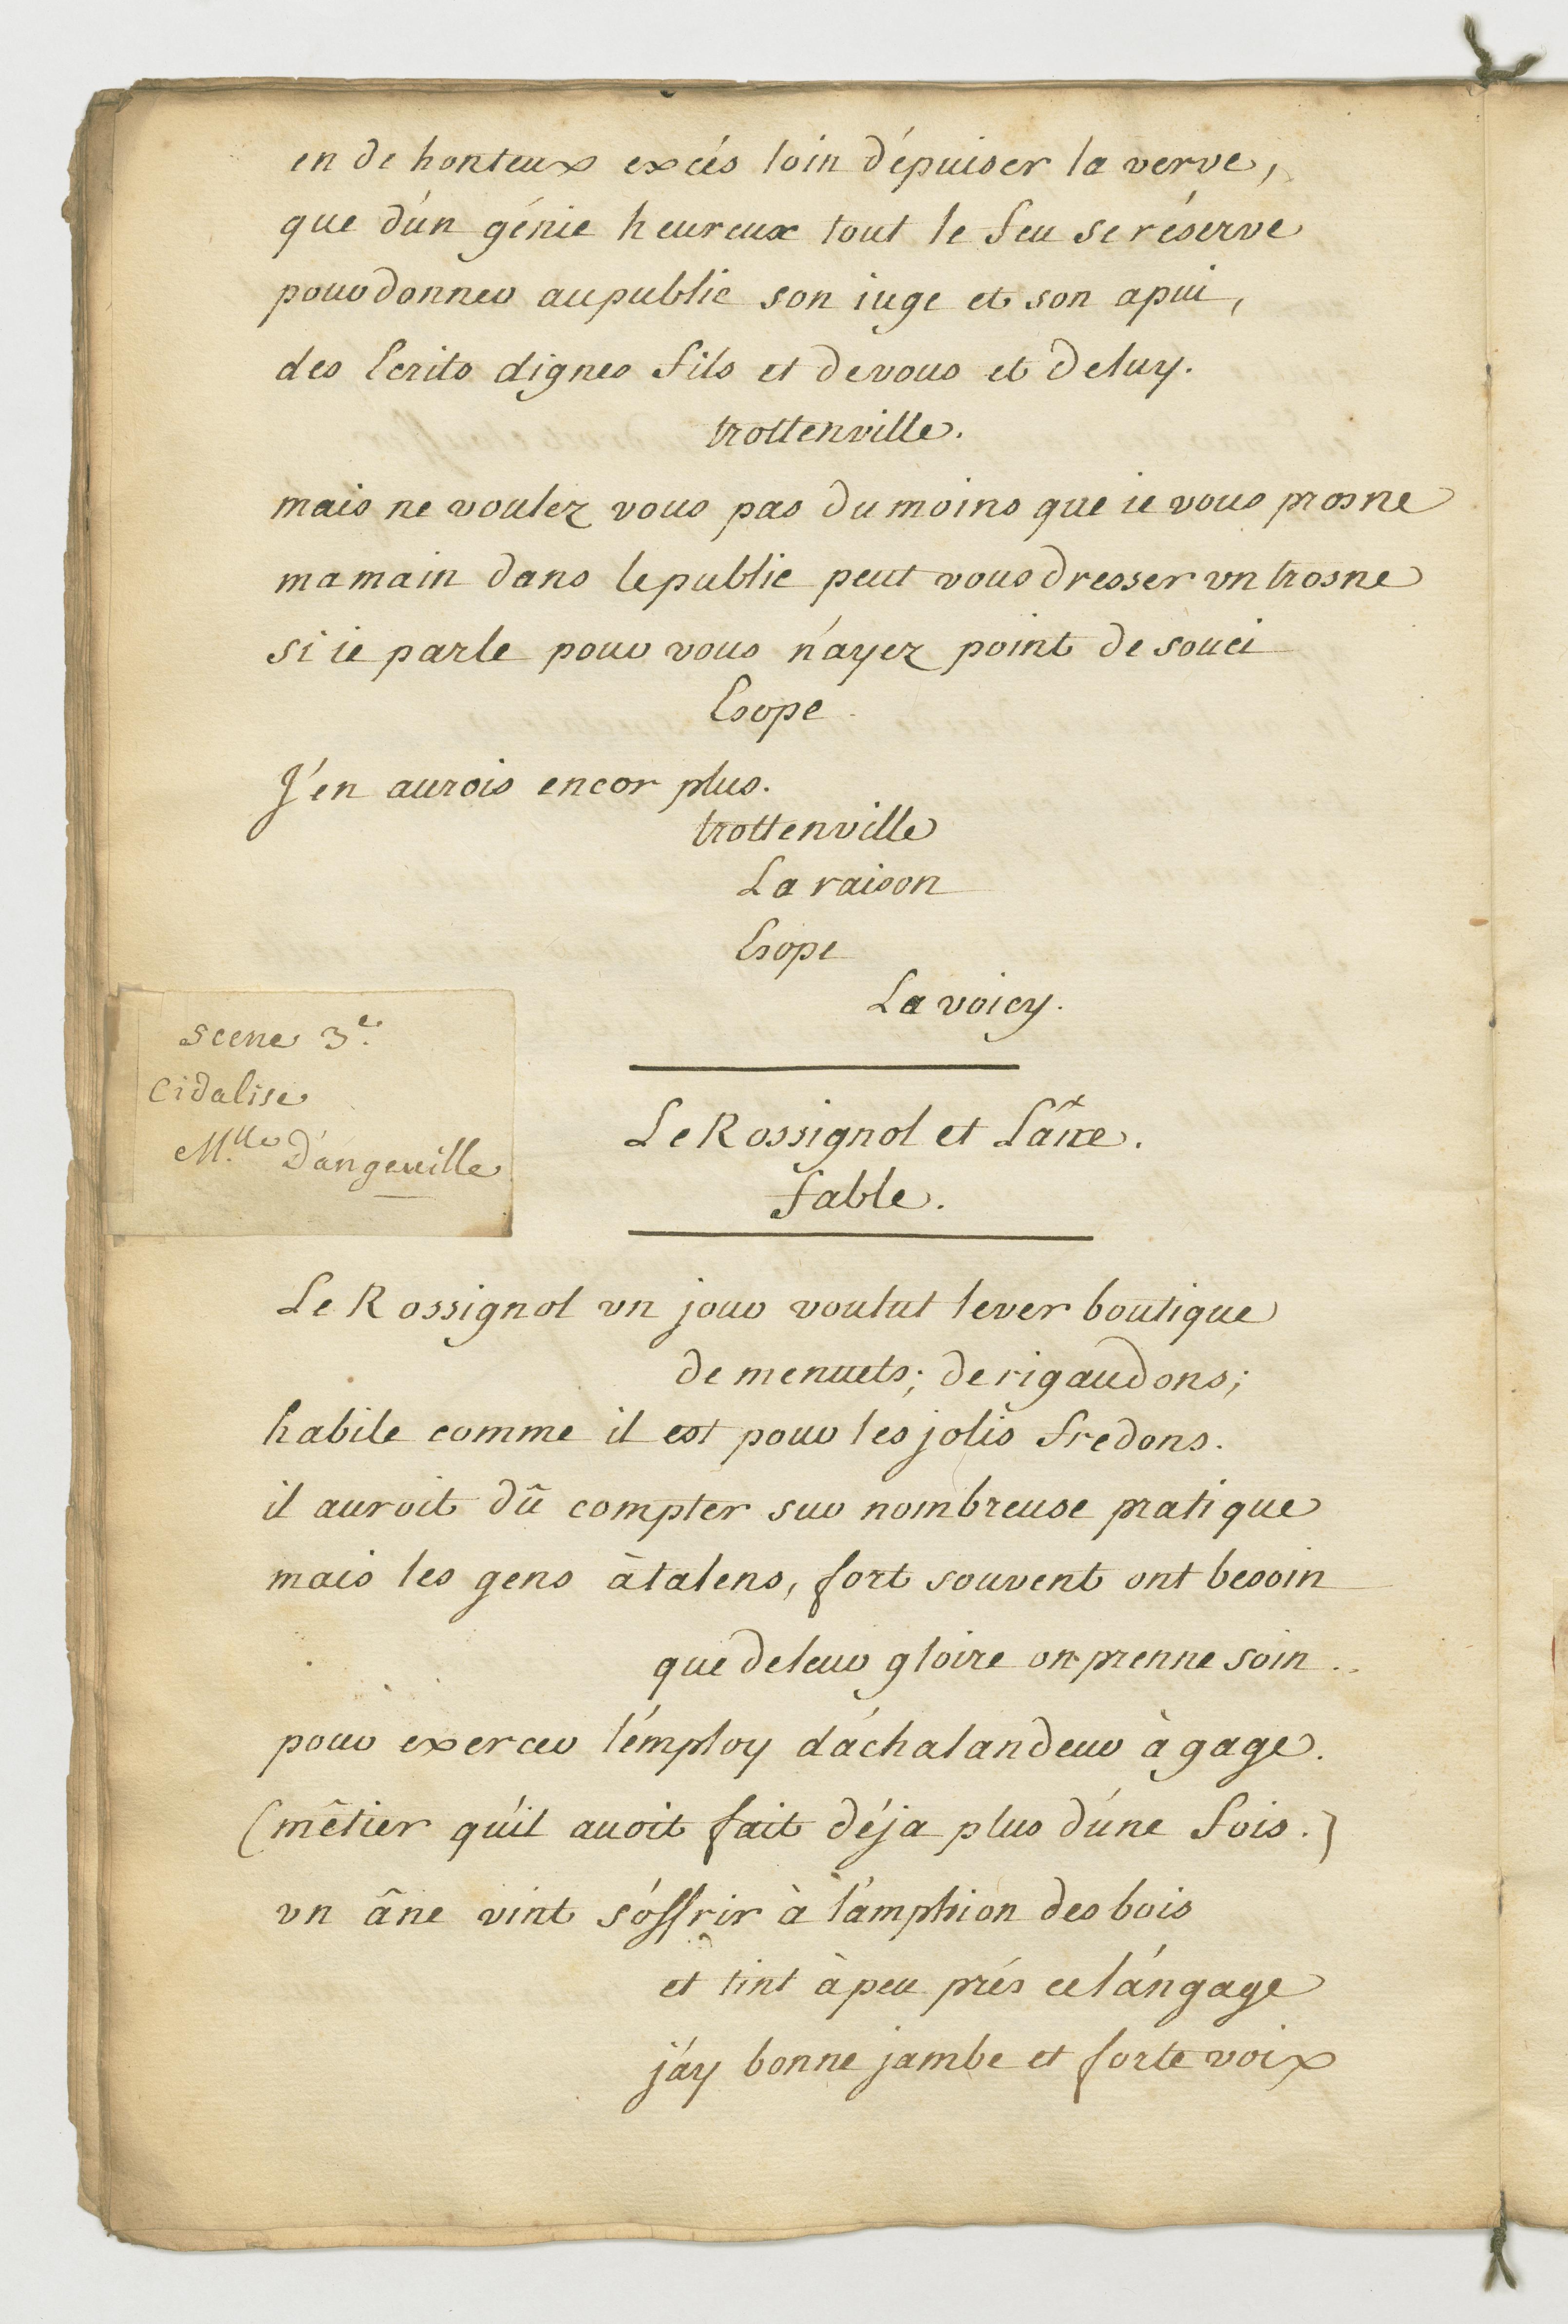 en de honteux excés loin d'épuiser la verve,
que d'un génie heureux tout le feu se réserve
pour donner au public son iuge et son apui,
des Ecrits dignes fils et de vous et de luy.
trottenville.
mais ne voulez vous pas du moins que ie vous prosne
ma main dans le public peut vous dresser vn trosne
si ie parle pour vous n'ayez point de souci
Esope
J'en aurois encor plus.
trottenville
La raison
Esope
La voicy.
scene 3e.
Cidalise
Mlle. D'angeuille
Le Rossignol et L'ane.
fable.
Le Rossignol vn jour voulut lever boutique
de menuets; de rigaudons;
habile comme il est pour les jolis fredons.
il auroit dû compter sur nombreuse pratique
mais les gens à talens, fort souvent ont besoin
que de leur gloire on prenne soin.
pour exercer l'employ d'achalandeur à gage.
(mêtier qu'il auoit fait déja plus d'une fois.)
vn âne vint s'offrir à l'amphion des bois
et tint à peu prés ce langage
j'ay bonne jambe et forte voix